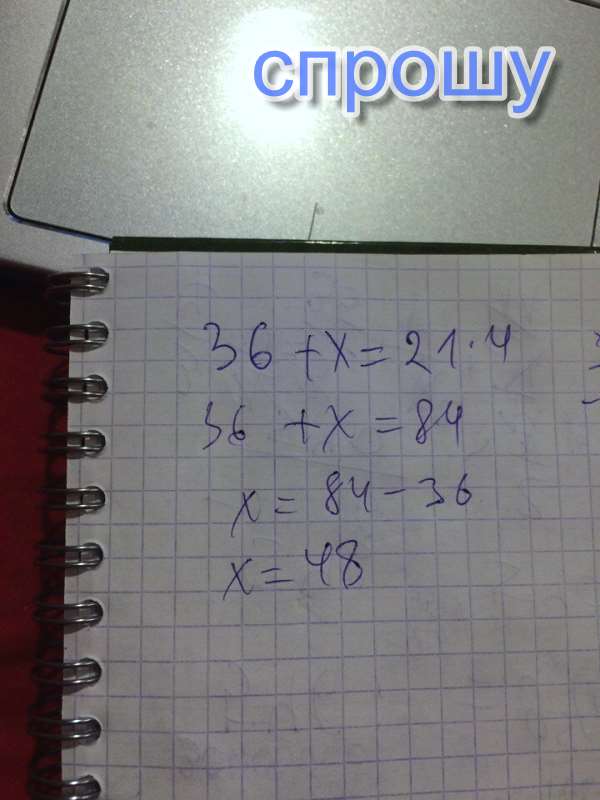 спрошу
36 + x = 21 · 4
36 + x = 84
x = 84 - 36
x = 48